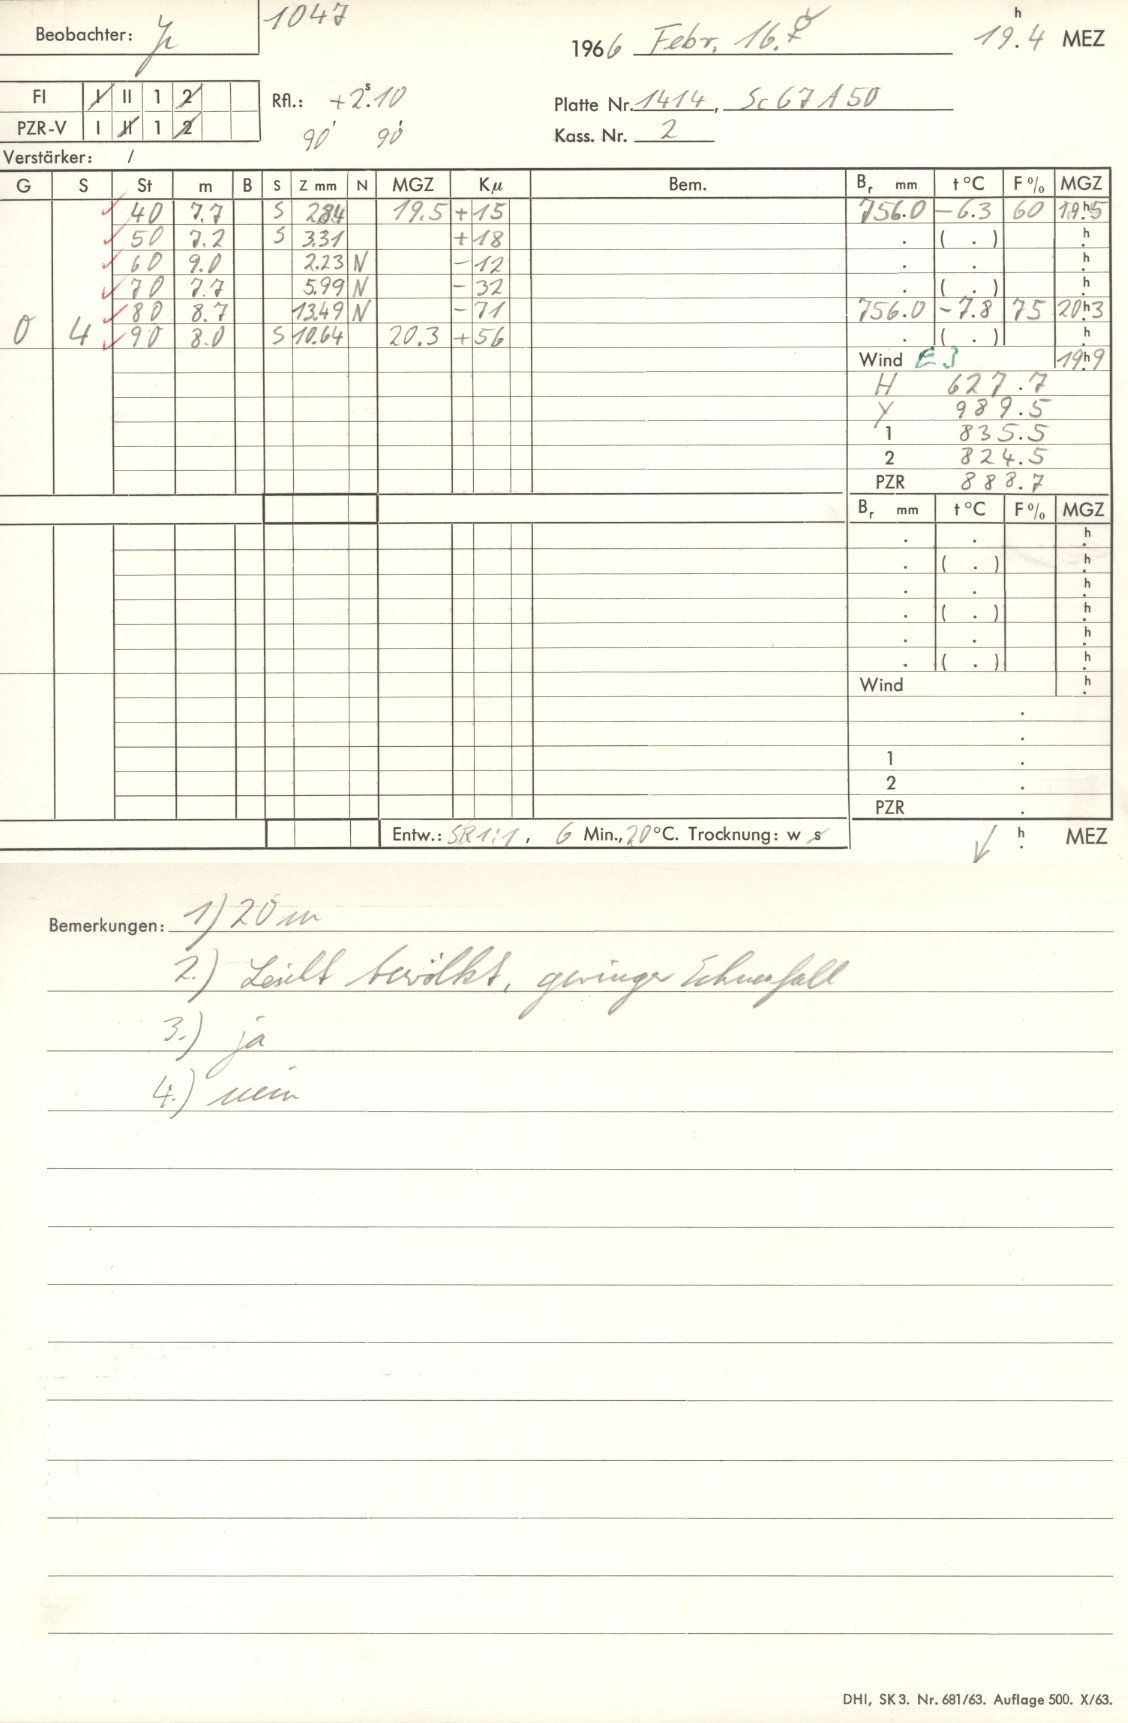 Beobachter:
1047
1966 Febr. 16. ☿ 19.4 h MEZ
FI I II 1 2
PZR-V I II 1 2
Rfl.: +2.s10
90' 90'
Platte Nr. 1414, Sc 67 A 50
Kass. Nr. 2
Verstärker: /
G S St m B S Z mm N MGZ Kμ Bem. Br mm t°C F% MGZ
40 7.7 S 2.84 19.5 +15 756.0 -6.3 60 19h5
50 7.2 S 3.31 +18 . ( . ) h.
60 9.0 2.23 N -12 . . h.
70 7.7 5.99 N -32 . ( . ) h.
80 8.7 13.49 N -71 756.0 -7.8 75 20h3
0 4 90 8.0 S 10.64 20.3 +56 . ( . ) h.
Wind E 3 19h9
H 627.7
Y 989.5
1 835.5
2 824.5
PZR 888.7
Br mm t°C F% MGZ
. . h.
. ( . ) h.
. . h.
. ( . ) h.
. . h.
. ( . ) h.
Wind h.
.
.
1 .
2 .
PZR .
Entw.: SR 1:1, 6 Min., 20°C. Trocknung: w s h. MEZ
Bemerkungen: 1) 20 m
2.) Leicht bewölkt, geringer Schneefall
3.) ja
4.) nein
DHI, SK 3. Nr. 681/63. Auflage 500. X/63.